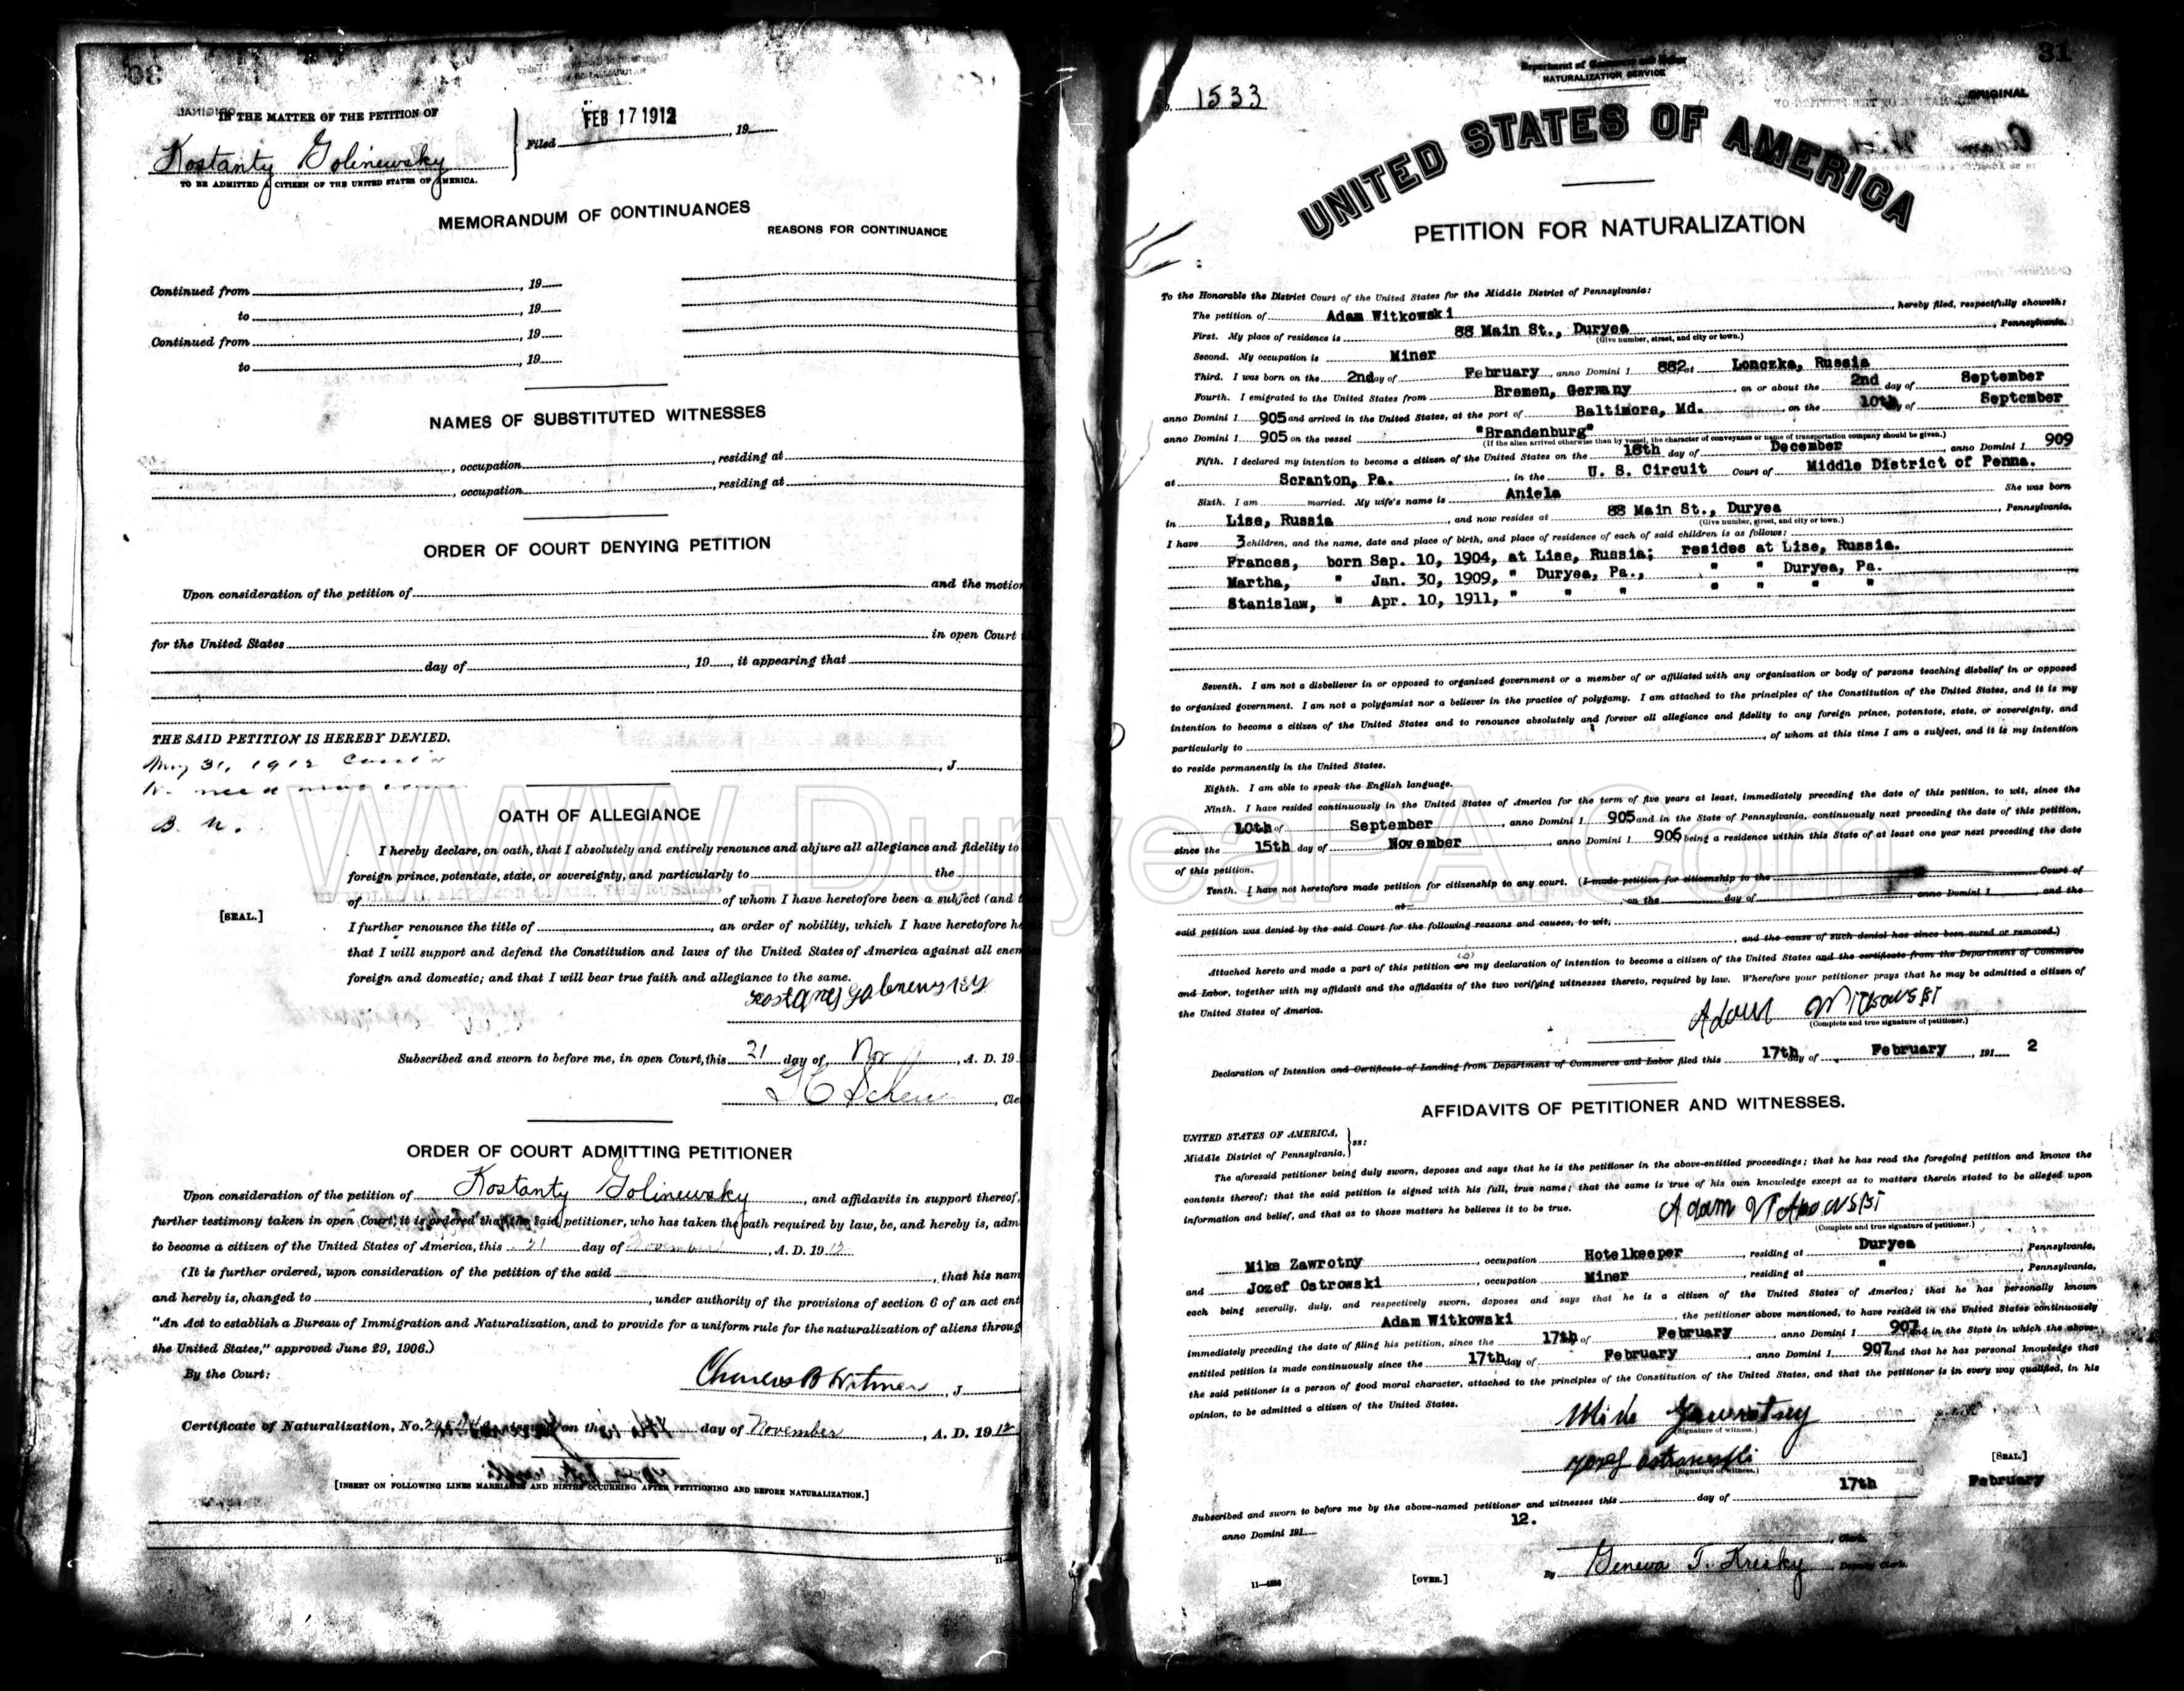 30
ORIGINAL
IN THE MATTER OF THE PETITION OF
Kostanty Golinewsky
TO BE ADMITTED A CITIZEN OF THE UNITED STATES OF AMERICA.
Filed FEB 17 1912, 19
MEMORANDUM OF CONTINUANCES
REASONS FOR CONTINUANCE
Continued from , 19
to , 19
Continued from , 19
to , 19
NAMES OF SUBSTITUTED WITNESSES
, occupation , residing at
, occupation , residing at
ORDER OF COURT DENYING PETITION
Upon consideration of the petition of and the motion
for the United States in open Court
day of , 19 , it appearing that
THE SAID PETITION IS HEREBY DENIED.
May 31, 1912
, J
B. N.
OATH OF ALLEGIANCE
I hereby declare, on oath, that I absolutely and entirely renounce and abjure all allegiance and fidelity to
foreign prince, potentate, state, or sovereignty, and particularly to the
of of whom I have heretofore been a subject (and
[SEAL.]
I further renounce the title of , an order of nobility, which I have heretofore
that I will support and defend the Constitution and laws of the United States of America against all
foreign and domestic; and that I will bear true faith and allegiance to the same.
Subscribed and sworn to before me, in open Court, this 21 day of Nov , A. D. 19
ORDER OF COURT ADMITTING PETITIONER
Upon consideration of the petition of Kostanty Golinewsky , and affidavits in support thereof,
further testimony taken in open Court, it is ordered that the said petitioner, who has taken the oath required by law, be, and hereby is, adm
to become a citizen of the United States of America, this 21 day of November , A. D. 1912
(It is further ordered, upon consideration of the petition of the said , that his nam
and hereby is, changed to , under authority of the provisions of section 6 of an act ent
"An Act to establish a Bureau of Immigration and Naturalization, and to provide for a uniform rule for the naturalization of aliens throug
the United States," approved June 29, 1906.)
By the Court:
Charles B Witmer , J
Certificate of Naturalization, No. on the day of November , A. D. 1912
[INSERT ON FOLLOWING LINES MARRIAGES AND BIRTHS OCCURRING AFTER PETITIONING AND BEFORE NATURALIZATION.]
31
Department of Commerce and Labor
NATURALIZATION SERVICE
1533
ORIGINAL
UNITED STATES OF AMERICA
PETITION FOR NATURALIZATION
To the Honorable the District Court of the United States for the Middle District of Pennsylvania:
The petition of Adam Witkowski , hereby filed, respectfully showeth:
First. My place of residence is 88 Main St., Duryea , Pennsylvania.
(Give number, street, and city or town.)
Second. My occupation is Miner
Third. I was born on the 2nd day of February , anno Domini 1 882 at Lonczka, Russia
Fourth. I emigrated to the United States from Bremen, Germany , on or about the 2nd day of September
anno Domini 1 905 and arrived in the United States, at the port of Baltimore, Md. , on the 10th day of September
anno Domini 1 905 on the vessel "Brandenburg"
(If the alien arrived otherwise than by vessel, the character of conveyance or name of transportation company should be given.)
Fifth. I declared my intention to become a citizen of the United States on the 18th day of December , anno Domini 1 909
at Scranton, Pa. , in the U. S. Circuit Court of Middle District of Penna.
Sixth. I am married. My wife's name is Aniela She was born
in Lise, Russia , and now resides at 88 Main St., Duryea , Pennsylvania.
(Give number, street, and city or town.)
I have 3 children, and the name, date and place of birth, and place of residence of each of said children is as follows:
Frances, born Sep. 10, 1904, at Lise, Russia; resides at Lise, Russia.
Martha, " Jan. 30, 1909, " Duryea, Pa., " " Duryea, Pa.
Stanislaw, " Apr. 10, 1911, " " " " " " "
Seventh. I am not a disbeliever in or opposed to organized government or a member of or affiliated with any organization or body of persons teaching disbelief in or opposed
to organized government. I am not a polygamist nor a believer in the practice of polygamy. I am attached to the principles of the Constitution of the United States, and it is my
intention to become a citizen of the United States and to renounce absolutely and forever all allegiance and fidelity to any foreign prince, potentate, state, or sovereignty, and
particularly to , of whom at this time I am a subject, and it is my intention
to reside permanently in the United States.
Eighth. I am able to speak the English language.
Ninth. I have resided continuously in the United States of America for the term of five years at least, immediately preceding the date of this petition, to wit, since the
10th of September , anno Domini 1 905 and in the State of Pennsylvania, continuously next preceding the date of this petition,
since the 15th day of November , anno Domini 1 906 being a residence within this State of at least one year next preceding the date
of this petition.
Tenth. I have not heretofore made petition for citizenship to any court. (I made petition for citizenship to the Court of
at , on the day of , anno Domini 1 , and the
said petition was denied by the said Court for the following reasons and causes, to wit,
, and the cause of such denial has since been cured or removed.)
Attached hereto and made a part of this petition are my declaration of intention to become a citizen of the United States and the certificate from the Department of Commerce
and Labor, together with my affidavit and the affidavits of the two verifying witnesses thereto, required by law. Wherefore your petitioner prays that he may be admitted a citizen of
the United States of America.
Adam Witkowski
(Complete and true signature of petitioner.)
Declaration of Intention and Certificate of Landing from Department of Commerce and Labor filed this 17th day of February , 191 2
AFFIDAVITS OF PETITIONER AND WITNESSES.
UNITED STATES OF AMERICA,
Middle District of Pennsylvania, ss:
The aforesaid petitioner being duly sworn, deposes and says that he is the petitioner in the above-entitled proceedings; that he has read the foregoing petition and knows the
contents thereof; that the said petition is signed with his full, true name; that the same is true of his own knowledge except as to matters therein stated to be alleged upon
information and belief, and that as to those matters he believes it to be true.
Adam Witkowski
(Complete and true signature of petitioner.)
Mike Zawrotny , occupation Hotelkeeper , residing at Duryea , Pennsylvania,
and Jozef Ostrowski , occupation Miner , residing at " , Pennsylvania,
each being severally, duly, and respectively sworn, deposes and says that he is a citizen of the United States of America; that he has personally known
Adam Witkowski , the petitioner above mentioned, to have resided in the United States continuously
immediately preceding the date of filing his petition, since the 17th of February , anno Domini 1 907 and in the State in which the above-
entitled petition is made continuously since the 17th day of February , anno Domini 1 907 and that he has personal knowledge that
the said petitioner is a person of good moral character, attached to the principles of the Constitution of the United States, and that the petitioner is in every way qualified, in his
opinion, to be admitted a citizen of the United States.
Mike Zawrotny
(Signature of witness.)
Jozef Ostrowski
(Signature of witness.)
[SEAL]
Subscribed and sworn to before me by the above-named petitioner and witnesses this day of 17th February
anno Domini 191 12.
, Clerk.
By Geneva T. Kresky , Deputy Clerk.
[OVER.]
WWW.DuryeaPA.Com